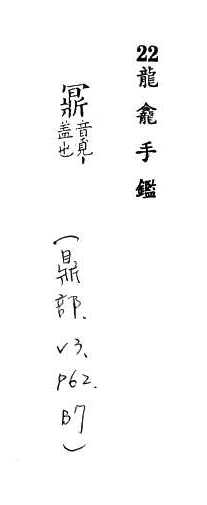 22龍龕手鑑
鼏音覓蓋也(鼎部.v3、p62.B7)